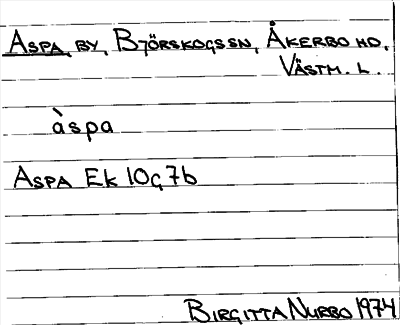 ASPA, BY, BJÖRSKOGS SN, ÅKERBO HD,
VÄSTM. L.
àspa
ASPA EK 10G7b
BIRGITTA NURBO 1974